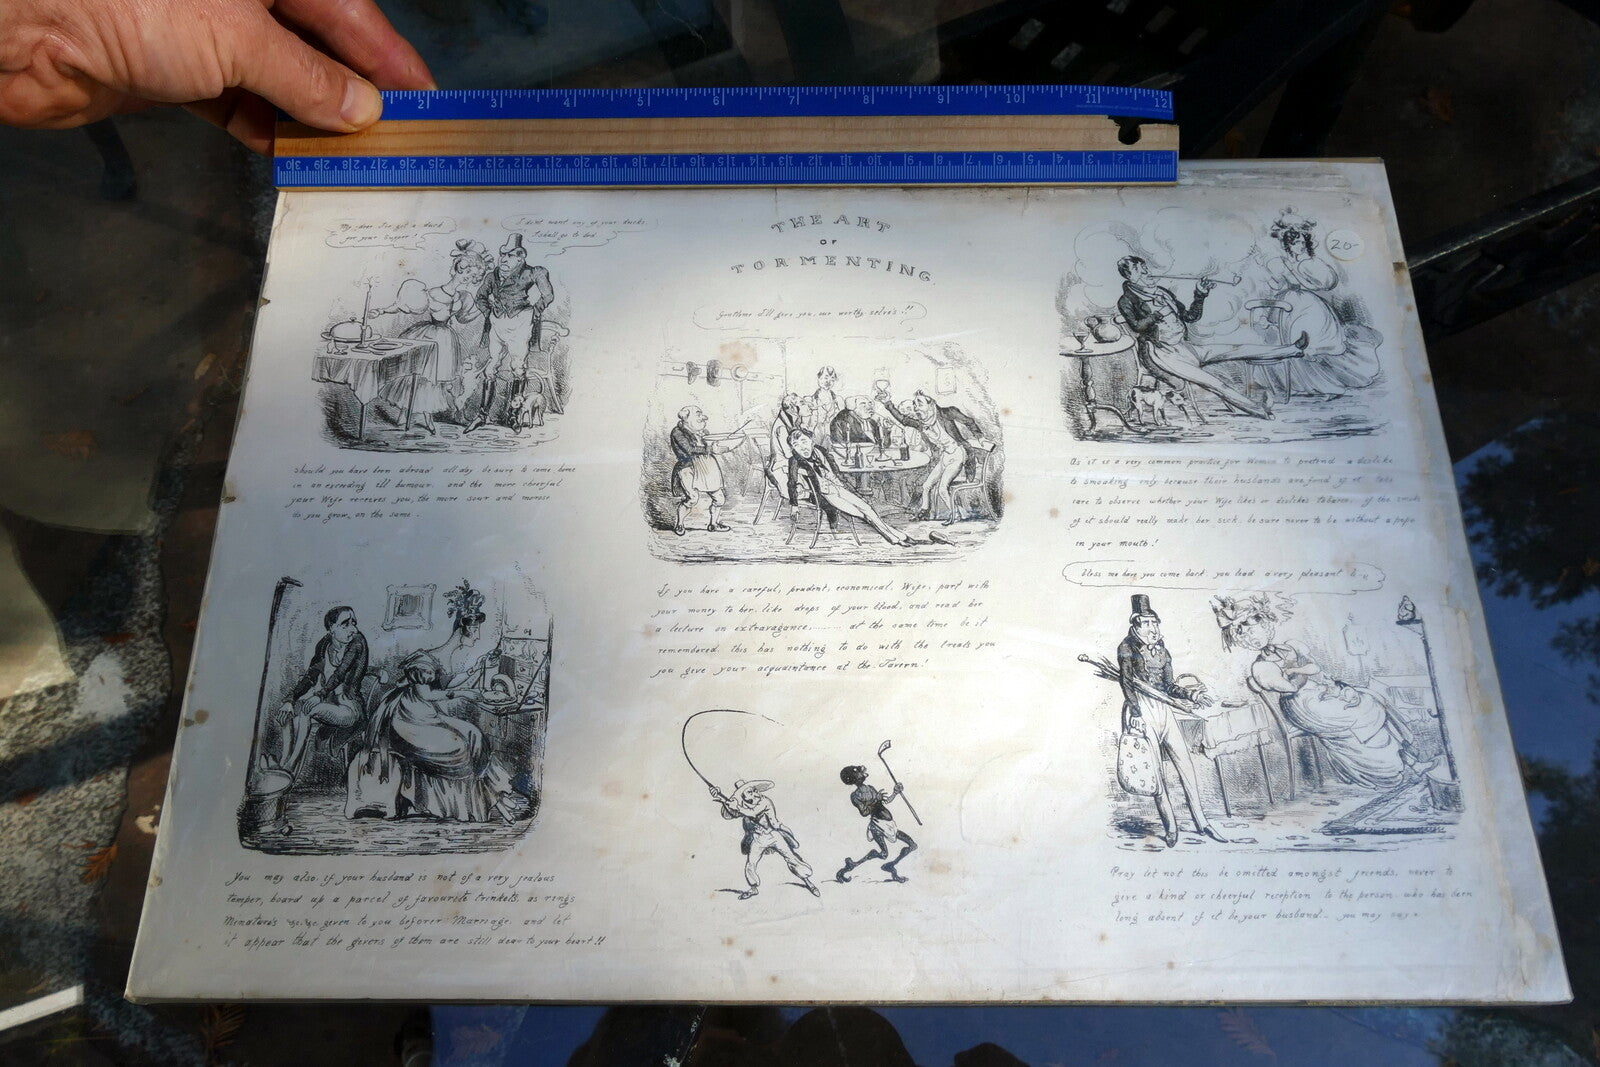 2 3 4 5 6 7 8 9 10 11 12
30 29 28 27 26 25 24 23 22 21 20 19 18 17 16 15 14 13 12 11 10 9 8 7 6 5 4 3 2
My dear I've got a duck
for your supper!
I don't want any of your ducks
I shall go to bed
THE ART
OF
TORMENTING
2
20-
Gentlemen I'll give you, our worthy selves!!
Should you have been abroad all day be sure to come home
in an exceeding ill humour. and the more cheerful
your Wife receives you, the more sour and morose
do you grow on the same.
As it is a very common practice for Women to pretend a dislike
to smoaking only because their husbands are fond of it take
care to observe whether your Wife likes or dislikes tobacco. if the smoke
of it should really make her sick. be sure never to be without a pipe
in your mouth!
If you have a careful, prudent, economical, Wife, part with
your money to her, like drops of your blood, and read her
a lecture on extravagance, at the same time be it
remembered this has nothing to do with the treats you
you give your acquaintance at the Tavern!
Bless me have you come back, you lead a very pleasant
You may also, if your husband is not of a very jealous
temper, hoard up a parcel of favourite trinkets, as rings
Minatures given to you beforer Marriage, and let
it appear that the givers of them are still dear to your heart!!
Pray let not this be omitted amongst friends, never to
give a kind or cheerful reception to the person who has been
long absent if it be your husband you may say